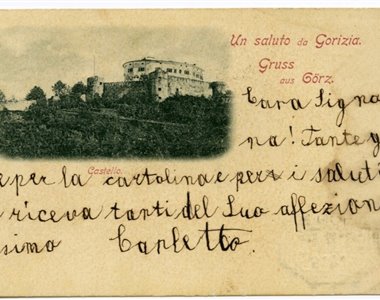 Un saluto da Gorizia.
Gruss
aus Görz.
Castello.
Cara Signo
na! Tante g
e per la cartolina e per i saluti
riceva tanti del Suo affezion
issimo Carletto.